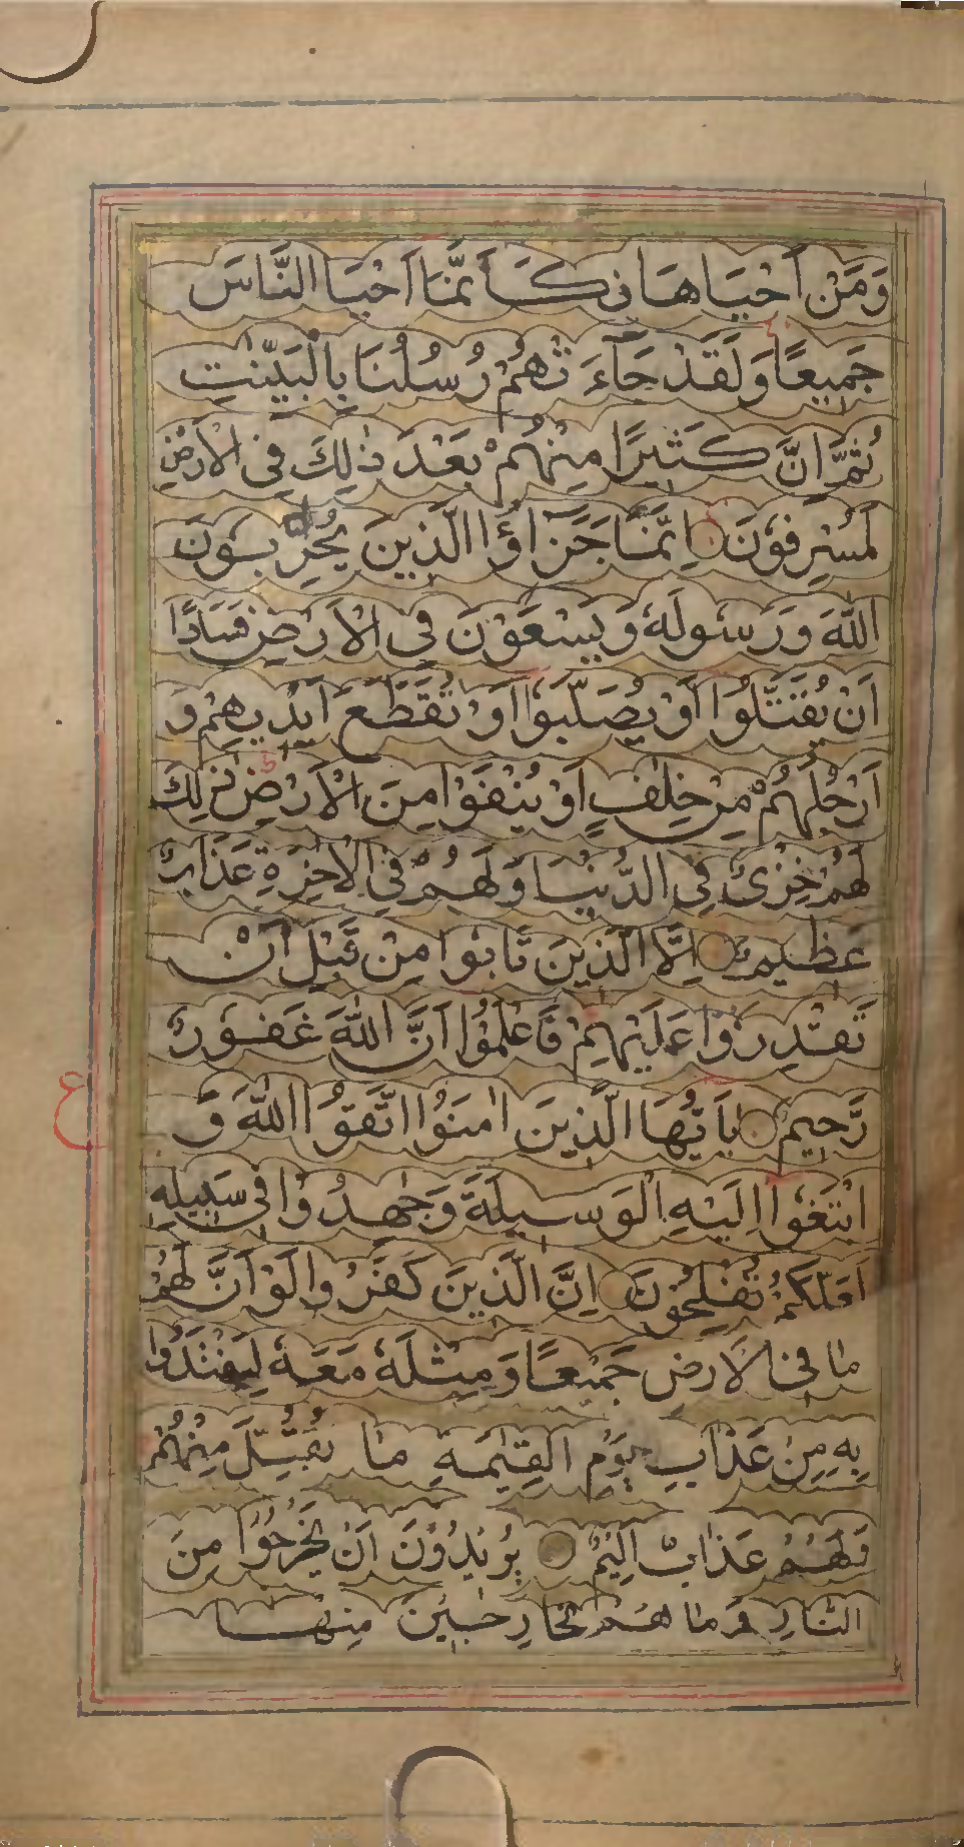 وَمَنْ اَحْيَاهَا فَكَاَنَّمَا اَحْيَا النَّاسَ
جَمِيعًا وَلَقَدْ جَآءَ تْهُمْ رُسُلُنَا بِالْبَيِّنٰتِ
ثُمَّ اِنَّ كَثِيرًا مِنْهُمْ بَعْدَ ذٰلِكَ فِى الْاَرْضِ
لَمُسْرِفُوْنَ اِنَّمَا جَزَآؤُا الَّذِينَ يُحَارِبُوْنَ
اللّٰهَ وَرَسُولَهٗ وَيَسْعَوْنَ فِى الْاَرْضِ فَسَادًا
اَنْ يُقَتَّلُوا اَوْ يُصَلَّبُوْا اَوْ تُقَطَّعَ اَيْدِيهِمْ وَ
اَرْجُلُهُمْ مِنْ خِلٰفٍ اَوْ يُنْفَوْا مِنَ الْاَرْضِ ذٰلِكَ
لَهُمْ خِزْىٌ فِى الدُّنْيَا وَلَهُمْ فِى الْاٰخِرَةِ عَذَابٌ
عَظِيمٌ اِلَّا الَّذِينَ تَابُوا مِنْ قَبْلِ اَنْ
تَقْدِرُوْا عَلَيْهِمْ فَاعْلَمُوْا اَنَّ اللّٰهَ غَفُوْرٌ
رَّحِيمٌ يٰاَيُّهَا الَّذِينَ اٰمَنُوْا اتَّقُوا اللّٰهَ وَ
ع
ابْتَغُوْا اِلَيْهِ الْوَسِيلَةَ وَجٰهِدُوْا فِى سَبِيلِهٖ
لَعَلَّكُمْ تُفْلِحُوْنَ اِنَّ الَّذِينَ كَفَرُوا لَوْ اَنَّ لَهُمْ
مَا فِى الْاَرْضِ جَمِيعًا وَمِثْلَهٗ مَعَهٗ لِيَفْتَدُوْا
بِهٖ مِنْ عَذَابِ يَوْمِ الْقِيٰمَةِ مَا تُقُبِّلَ مِنْهُمْ
وَلَهُمْ عَذَابٌ اَلِيْمٌ يُرِيْدُوْنَ اَنْ يَخْرُجُوْا مِنَ
النَّارِ وَمَا هُمْ بِخَارِجِيْنَ مِنْهَا